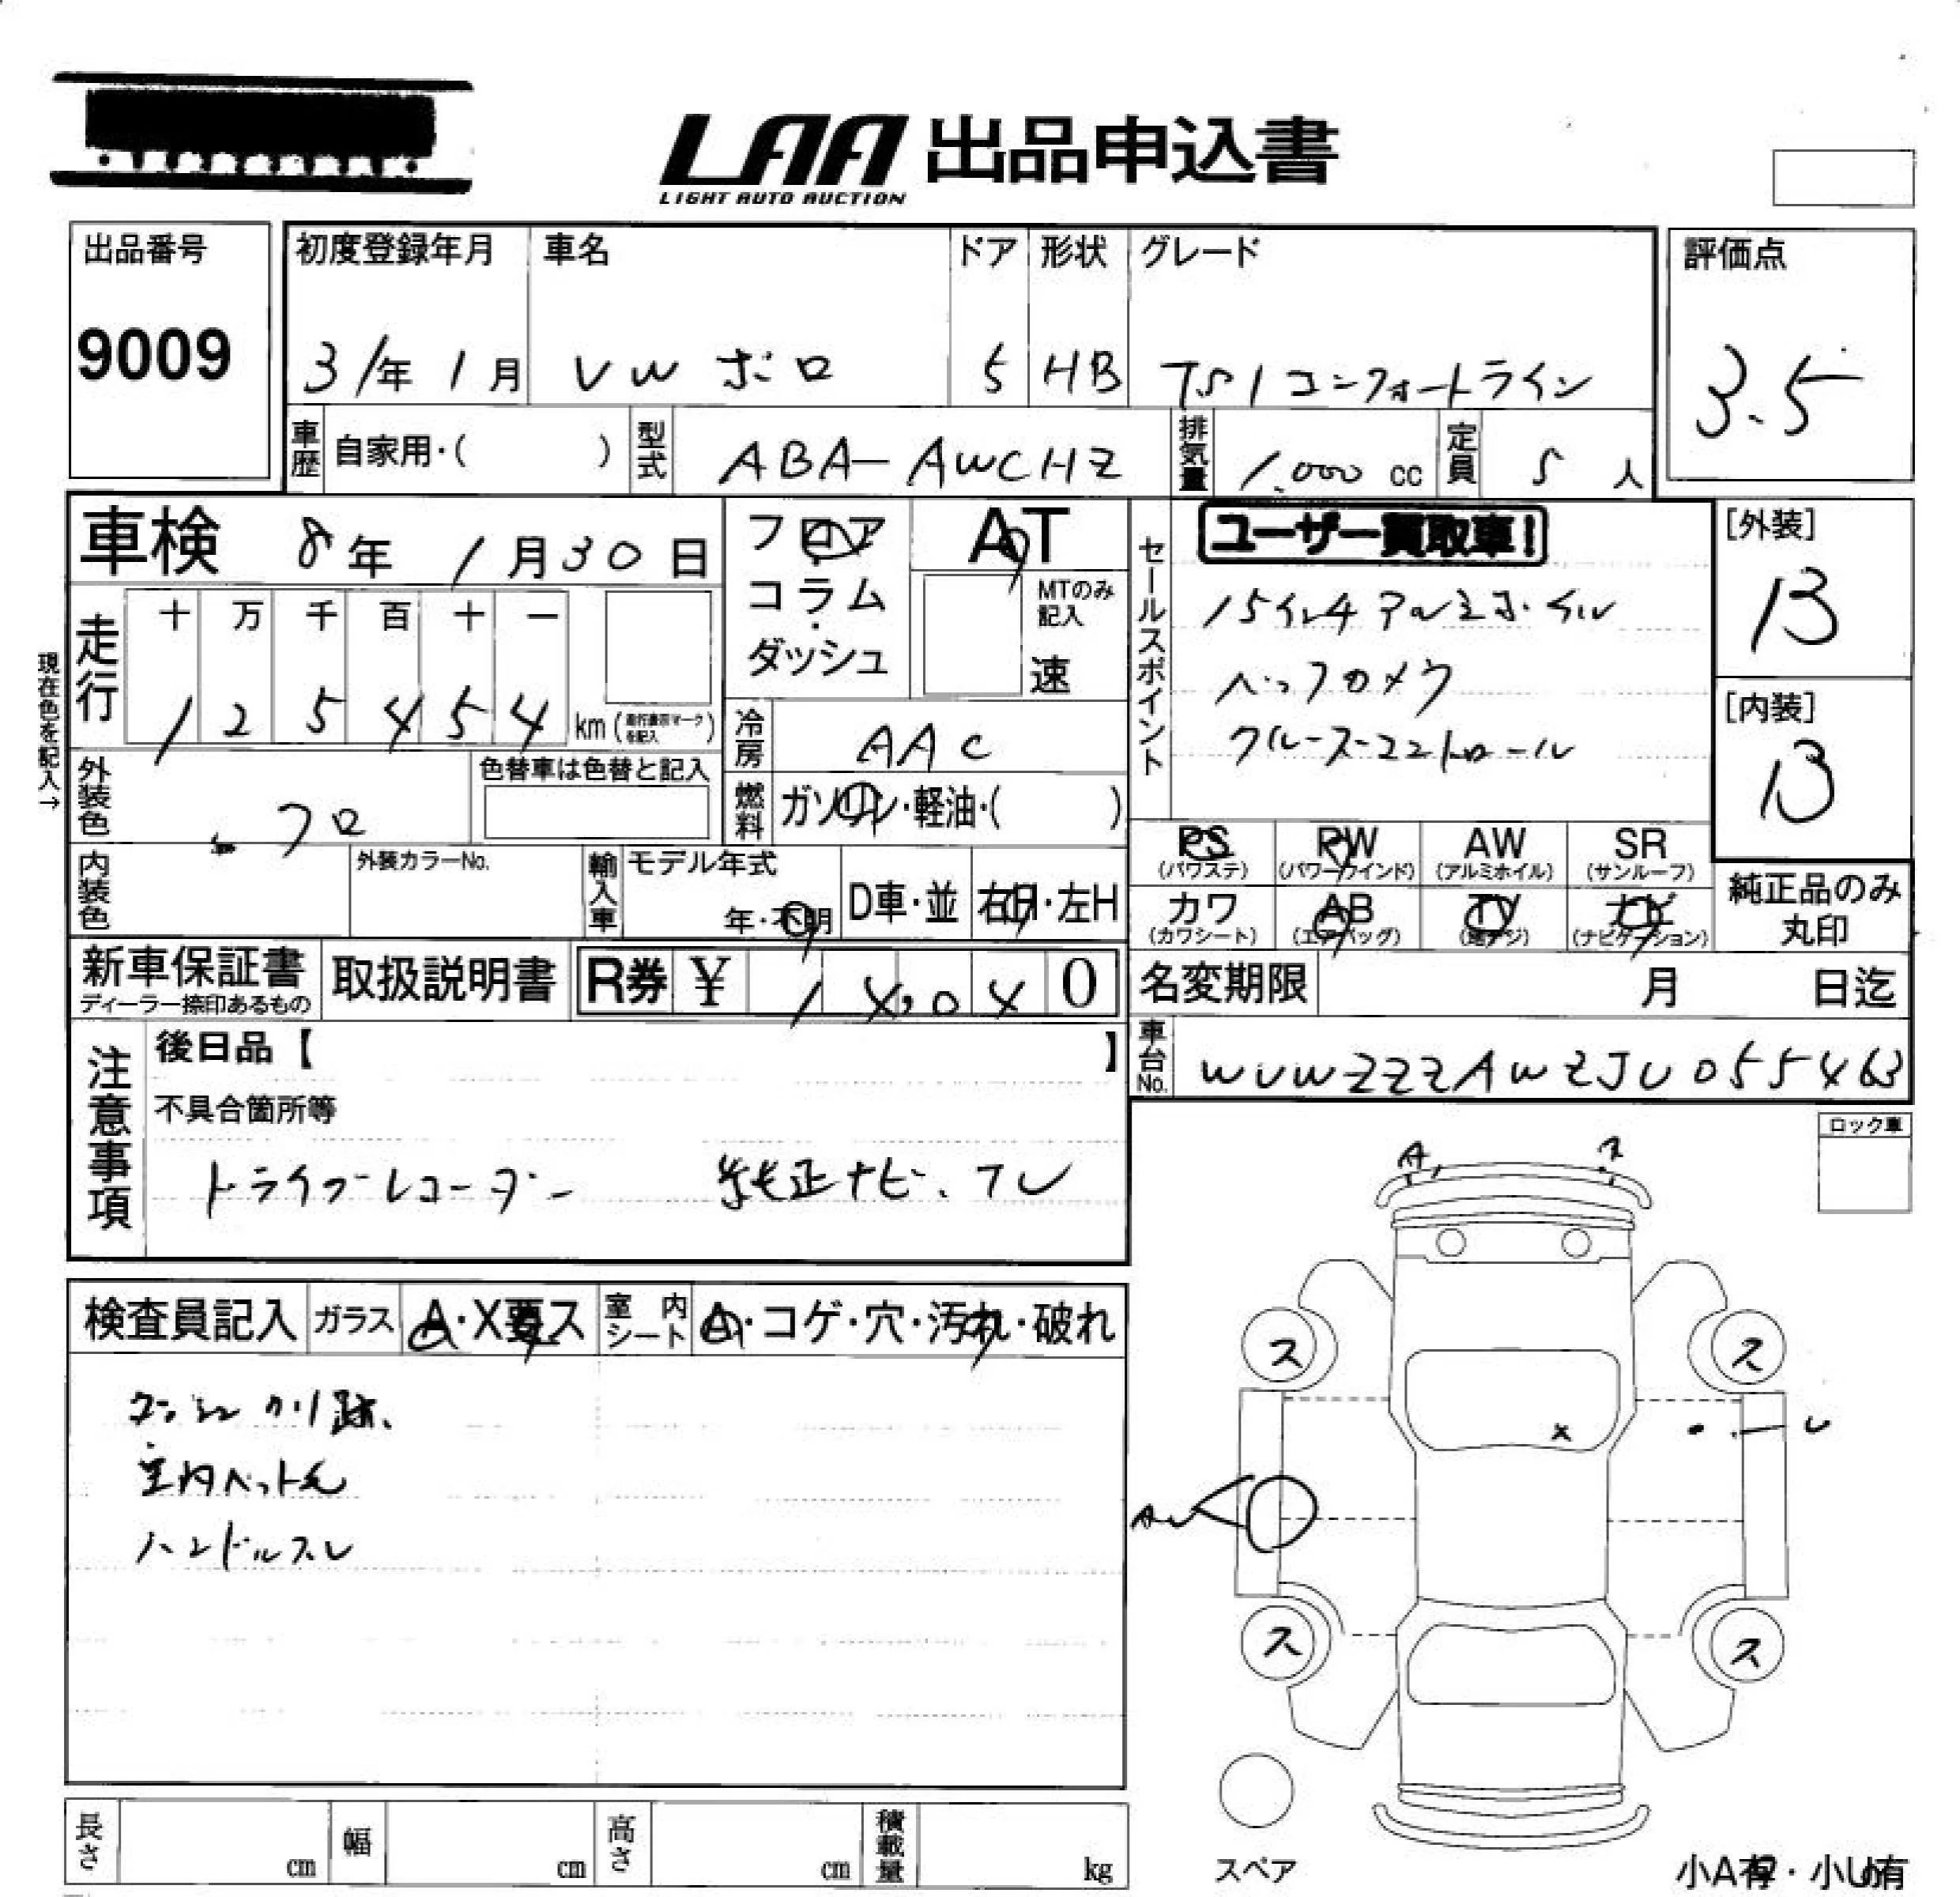 LAA 出品申込書
LIGHT AUTO AUCTION
出品番号
9009
初度登録年月
31年1月
車名
VW ポロ
ドア
5
形状
HB
グレード
TSIコンフォートライン
評価点
3.5
車歴
自家用・( )
型式
ABA-AWCHZ
排気量
1.000 cc
定員
5人
車検 8年1月30日
フロア・コラム・ダッシュ
AT
MTのみ記入
速
セールスポイント
ユーザー買取車!
15インチアルミホイル
バックカメラ
クルーズコントロール
[外装]
B
[内装]
B
現在色を記入→
走行
十 万 千 百 十 一
1 2 5 4 5 4 km (走行表示マークを記入)
冷房
AAC
外装色
クロ
色替車は色替と記入
燃料
ガソリン・軽油・( )
内装色
外装カラーNo.
輸入車
モデル年式
年・不明
D車・並
右H・左H
PS
(パワステ)
PW
(パワーウインド)
AW
(アルミホイル)
SR
(サンルーフ)
カワ
(カワシート)
AB
(エアバッグ)
TV
(地デジ)
ナビ
(ナビゲーション)
純正品のみ丸印
新車保証書
ディーラー捺印あるもの
取扱説明書
R券 ¥ 0
名変期限 月 日迄
車台No.
WVWZZZAWZJU055463
注意事項
後日品【 】
不具合箇所等
ドライブレコーダー 純正ナビ、テレ
ロック車
A
検査員記入
ガラス
A・X要ス
室内シート
A・コゲ・穴・汚れ・破れ
跡、
室内ペット毛
ハンドルスレ
ス
ス
X
U
AU
ス
ス
スペア
長さ cm
幅 cm
高さ cm
積載量 kg
小A有・小U有